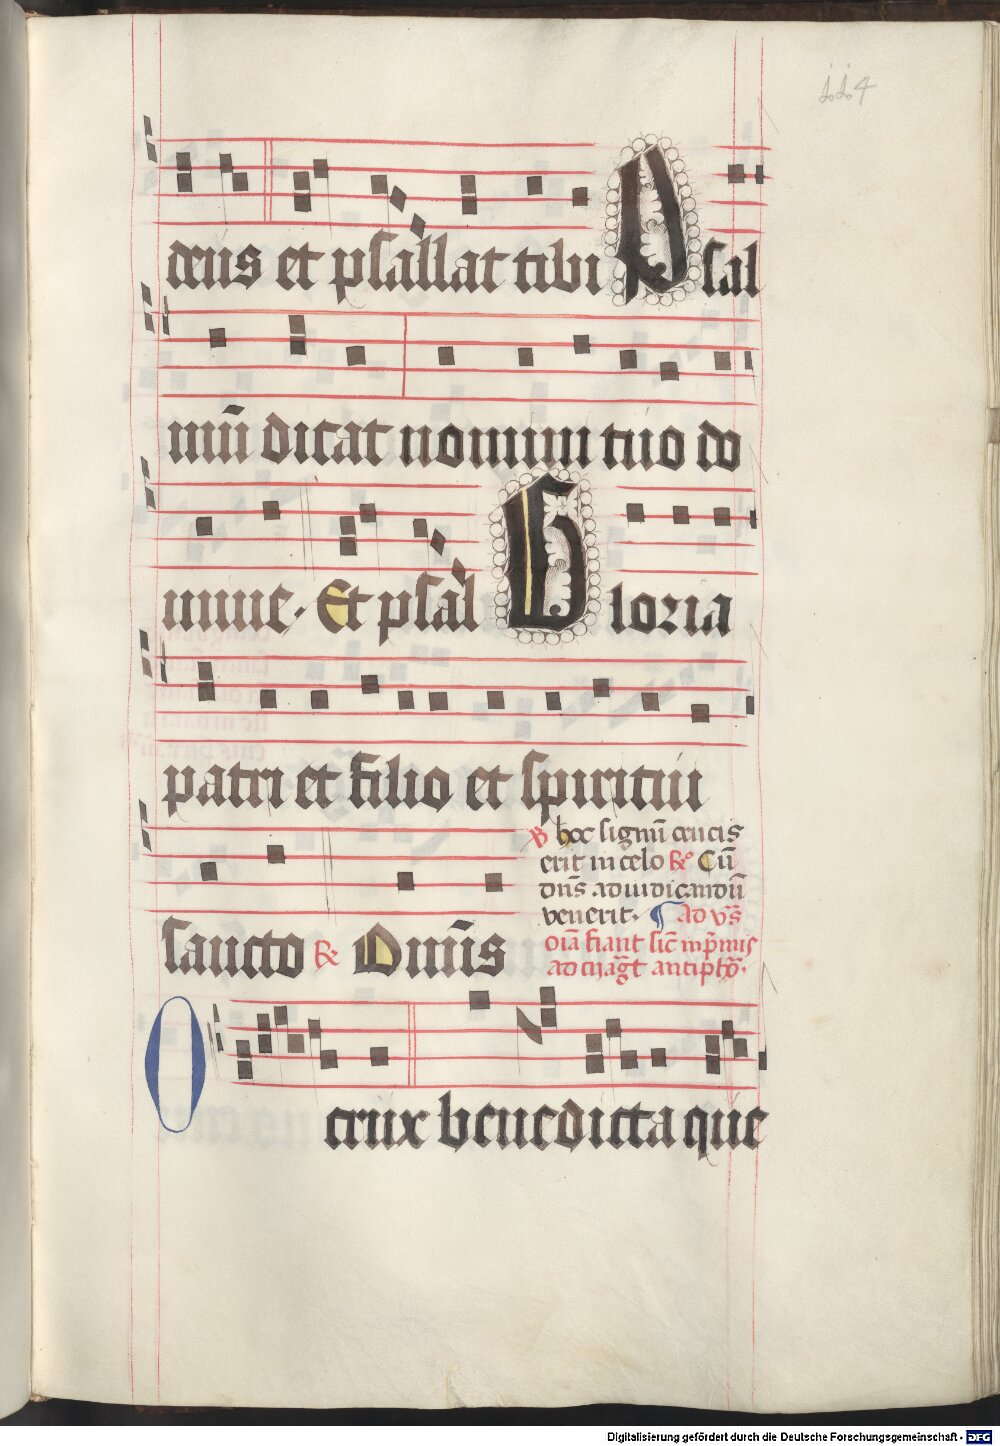 114
deus et psallat tibi Psal
mū dicat nomini tuo do
mine. Et psal Gloria
patri et filio et spiritui
sancto ℟ Omīs
℣ hoc signū crucis
erit in celo ℟ Cū
dn̄s ad iudicandū
venerit. ¶ Ad vs̄
oīa fiant sic̄ in p̄mis
ad
O crux benedicta que
Digitalisierung gefördert durch die Deutsche Forschungsgemeinschaft - DFG